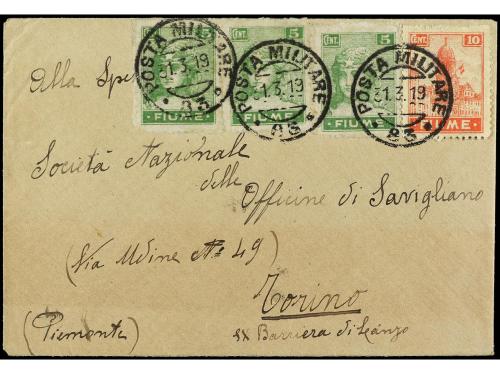 CENT. 5 CENT. 5 CENT. 5 10
POSTA MILITARE 31.3.19 83
POSTA MILITARE 31.3.19 83
POSTA MILITARE 31.3.19 83
FIUME FIUME FIUME
Alla Spe
Società Nazionale
delle
Officine di Savigliano
(Via Udine N° 49)
Torino
(Piemonte)
ex Barriera di Lanzo